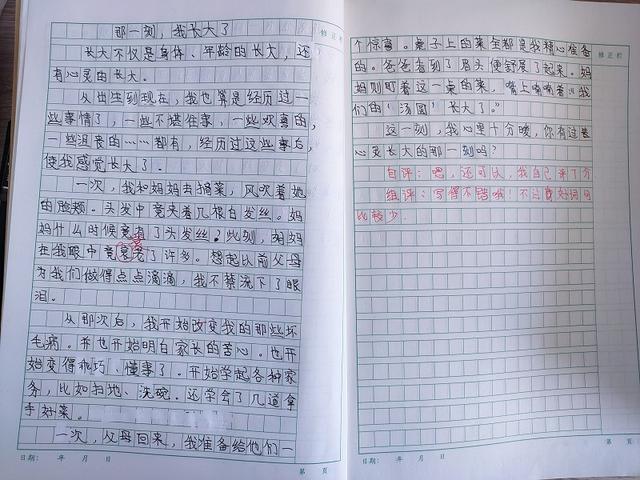 那一刻，我长大了
长大不仅是身体、年龄的长大，还
有心灵的长大。
从出生到现在，我也算是经历过一
些事情了，一些不堪往事，一些欢喜的，
一些沮丧的……都有，经历过这些事后，
使我感觉长大了。
一次，我和妈妈去摘菜，风吹着她
的脸颊。头发中竟夹着几根白发丝。妈
妈什么时候竟有了头发丝？此刻，妈妈
在我眼中竟老了许多。想起以前父母
为我们做得点点滴滴，我不禁流下了眼
泪。
从那次后，我开始改变我的那些坏
毛病。并也开始明白家长的苦心。也开
始变得乖巧、懂事了。开始学起各种家
务，比如扫地、洗碗。还学会了几道拿
手好菜。
一次，父母回来，我准备给他们一
日期： 年 月 日
第 页
修正栏
个惊喜。桌子上的菜全都是我精心准备
的。爸爸看到了，眉头便舒展了起来。妈
妈则盯着这一桌的菜，嘴上喃喃着：“我
们的‘汤圆’长大了。”
这一刻，我心里十分暖，你有过甚
心灵长大的那一刻吗？
自评：嗯，还可以，我自己来了个
组评：写得不错哦！不过好词句
比较少。
日期： 年 月 日
第 页
修正栏